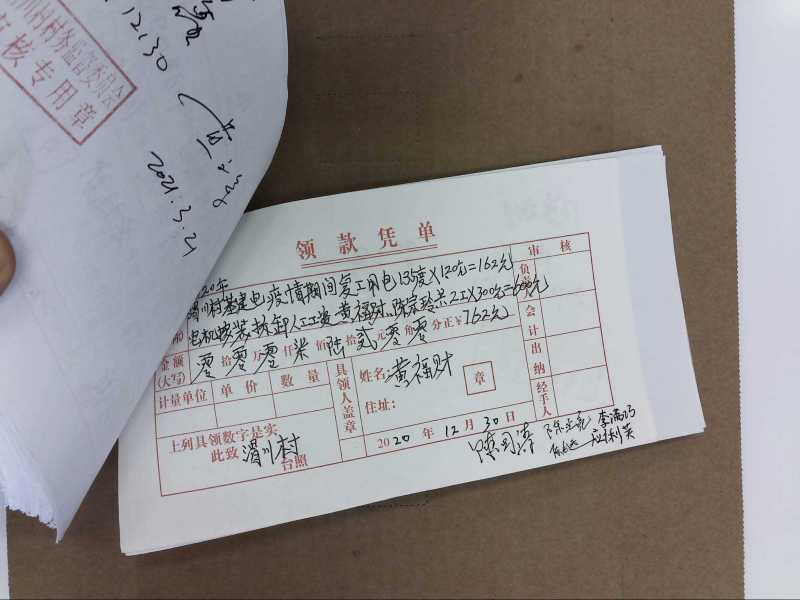 12.30
村村务监督委员会
审核专用章
2021.3.21
领款凭单
审核
20年
渭川村基建电疫情期间复工用电135度×1.20元=162元
电机安装拆卸人工工资黄福财、陈宗玲共2工×300元=600元
金额(大写) 零拾零万零仟柒佰陆拾贰元零角零分正¥762元
计量单位 单价 数量
具领人盖章
姓名:黄福财 章
住址:
负责人
会计
出纳
经手人
上列具领数字是实
此致 渭川村 台照
2020年12月30日